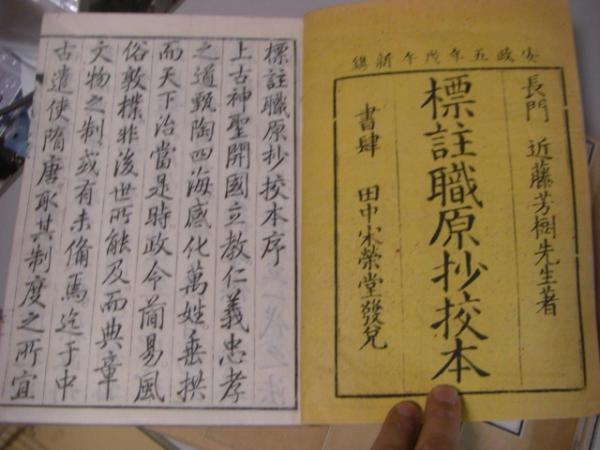 安政五年戊午新鐫
長門 近藤芳樹先生著
標註職原抄挍本
書肆 田中宋榮堂發兌
標註職原抄挍本序
上古神聖開國立教仁義忠孝
之道甄陶四海感化萬姓垂拱
而天下治當是時政令簡易風
俗敦樸非後世所能及而典章
文物之制或有未備焉迄于中
古遣使隋唐取其制度之所宜